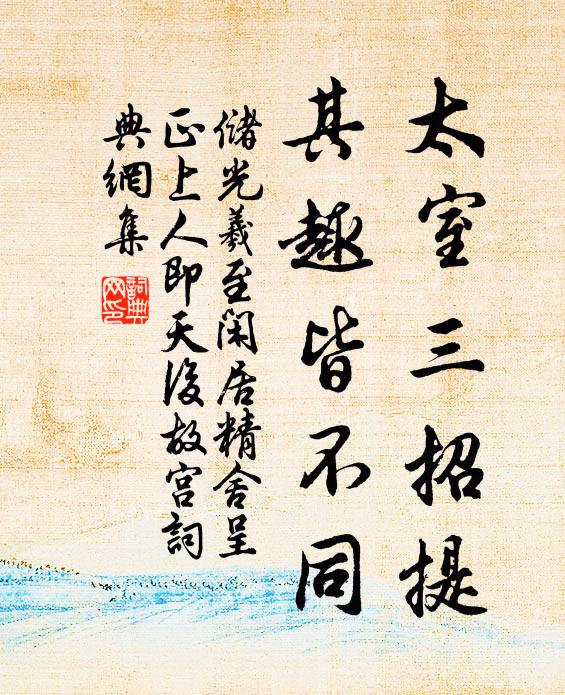 太室三招提
其趣皆不同
儲光羲至閑居精舍呈
正上人即天後故宮詞
典網集
詞典
网印